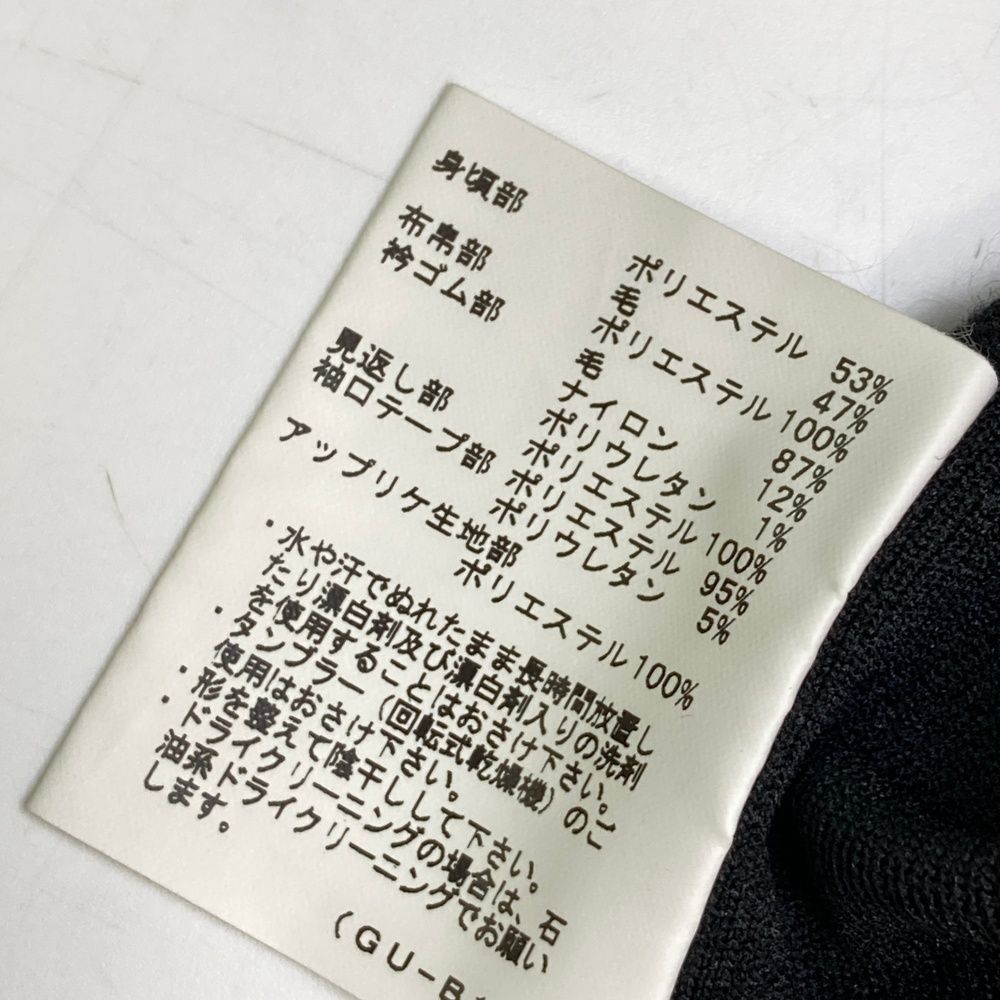 身頃部
ポリエステル 53%
毛 47%
布帛部 ポリエステル 100%
衿ゴム部 毛 87%
ナイロン 12%
ポリウレタン 1%
見返し部 ポリエステル 100%
袖口テープ部 ポリエステル 95%
ポリウレタン 5%
アップリケ生地部
ポリエステル 100%
・水や汗でぬれたまま長時間放置し
たり漂白剤及び漂白剤入りの洗剤
を使用することはおさけ下さい。
・タンブラー(回転式乾燥機)のご
使用はおさけ下さい。
・形を整えて陰干しして下さい。
・ドライクリーニングの場合は、石
油系ドライクリーニングでお願い
します。
(GU-B